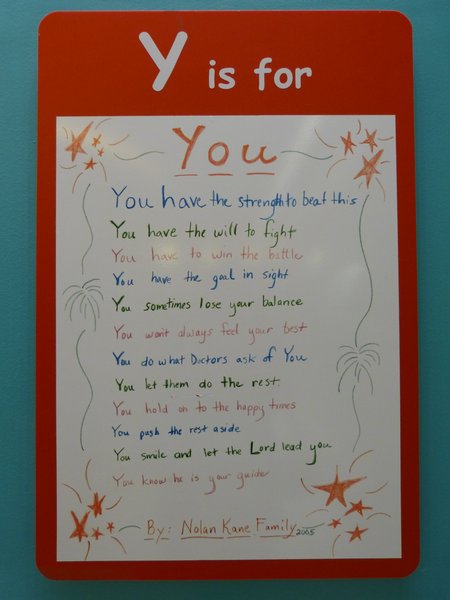 Y is for
You
You have the strength to beat this
You have the will to fight
You have to win the battle
You have the goal in sight
You sometimes lose your balance
You won't always feel your best
You do what Doctors ask of You
You let them do the rest.
You hold on to the happy times
You push the rest aside
You smile and let the Lord lead you
You know he is your guide
By: Nolan Kane Family 2005